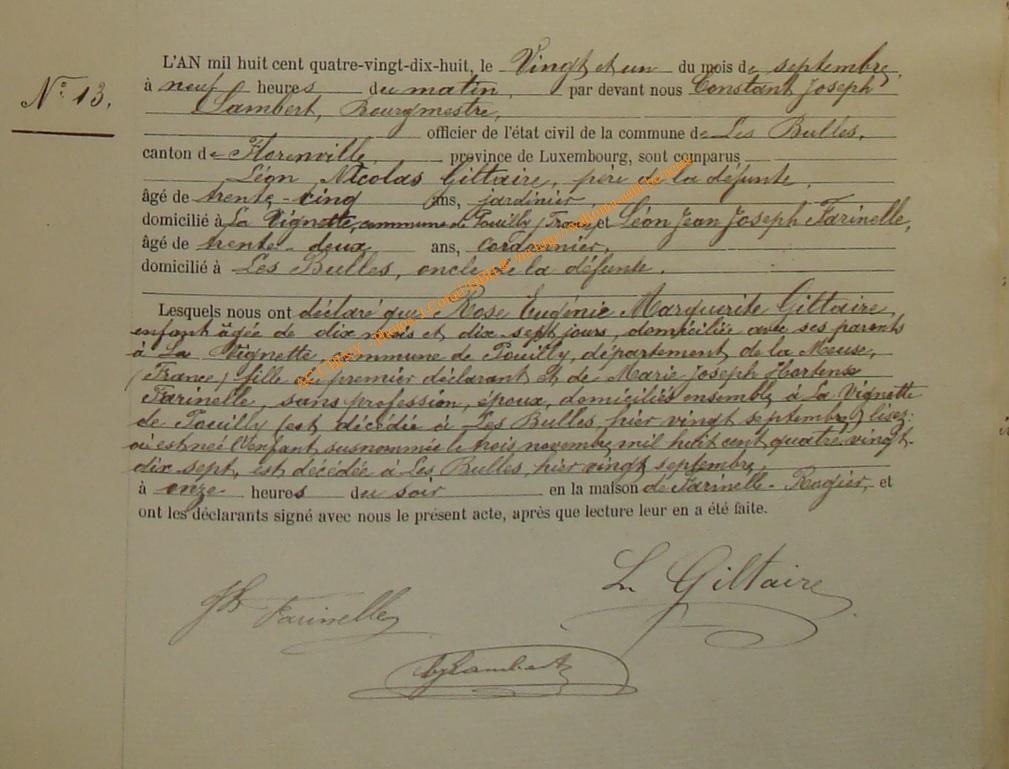 L'AN mil huit cent quatre-vingt-dix-huit, le Vingt et un du mois de septembre,
N° 13.
à neuf heures du matin, par devant nous Constant Joseph
Lambert, Bourgmestre,
officier de l'état civil de la commune de Les Bulles,
canton de Florenville, province de Luxembourg, sont comparus
Léon Nicolas Giltaire, père de la défunte,
âgé de trente-cinq ans, jardinier,
domicilié à La Vignette, commune de Pouilly (France) et Léon Jean Joseph Farinelle,
âgé de trente-deux ans, cordonnier,
domicilié à Les Bulles, oncle de la défunte.
Lesquels nous ont déclaré que Rose Eugénie Marguerite Giltaire,
enfant âgée de dix mois et dix sept jours, domiciliée avec ses parents
à La Vignette, commune de Pouilly, département de la Meuse,
(France) fille du premier déclarant et de Marie Joseph Hortense
Farinelle, sans profession, époux, domiciliés ensemble à La Vignette
de Pouilly (est décédée à Les Bulles, hier vingt septembre) lisez:
où est née l'enfant susnommée le trois novembre mil huit cent quatre vingt-
dix sept, est décédée à Les Bulles, hier vingt septembre,
à onze heures du soir en la maison de Farinelle-Rogier, et
ont les déclarants signé avec nous le présent acte, après que lecture leur en a été faite.
L. Giltaire
Farinelle
Lambert